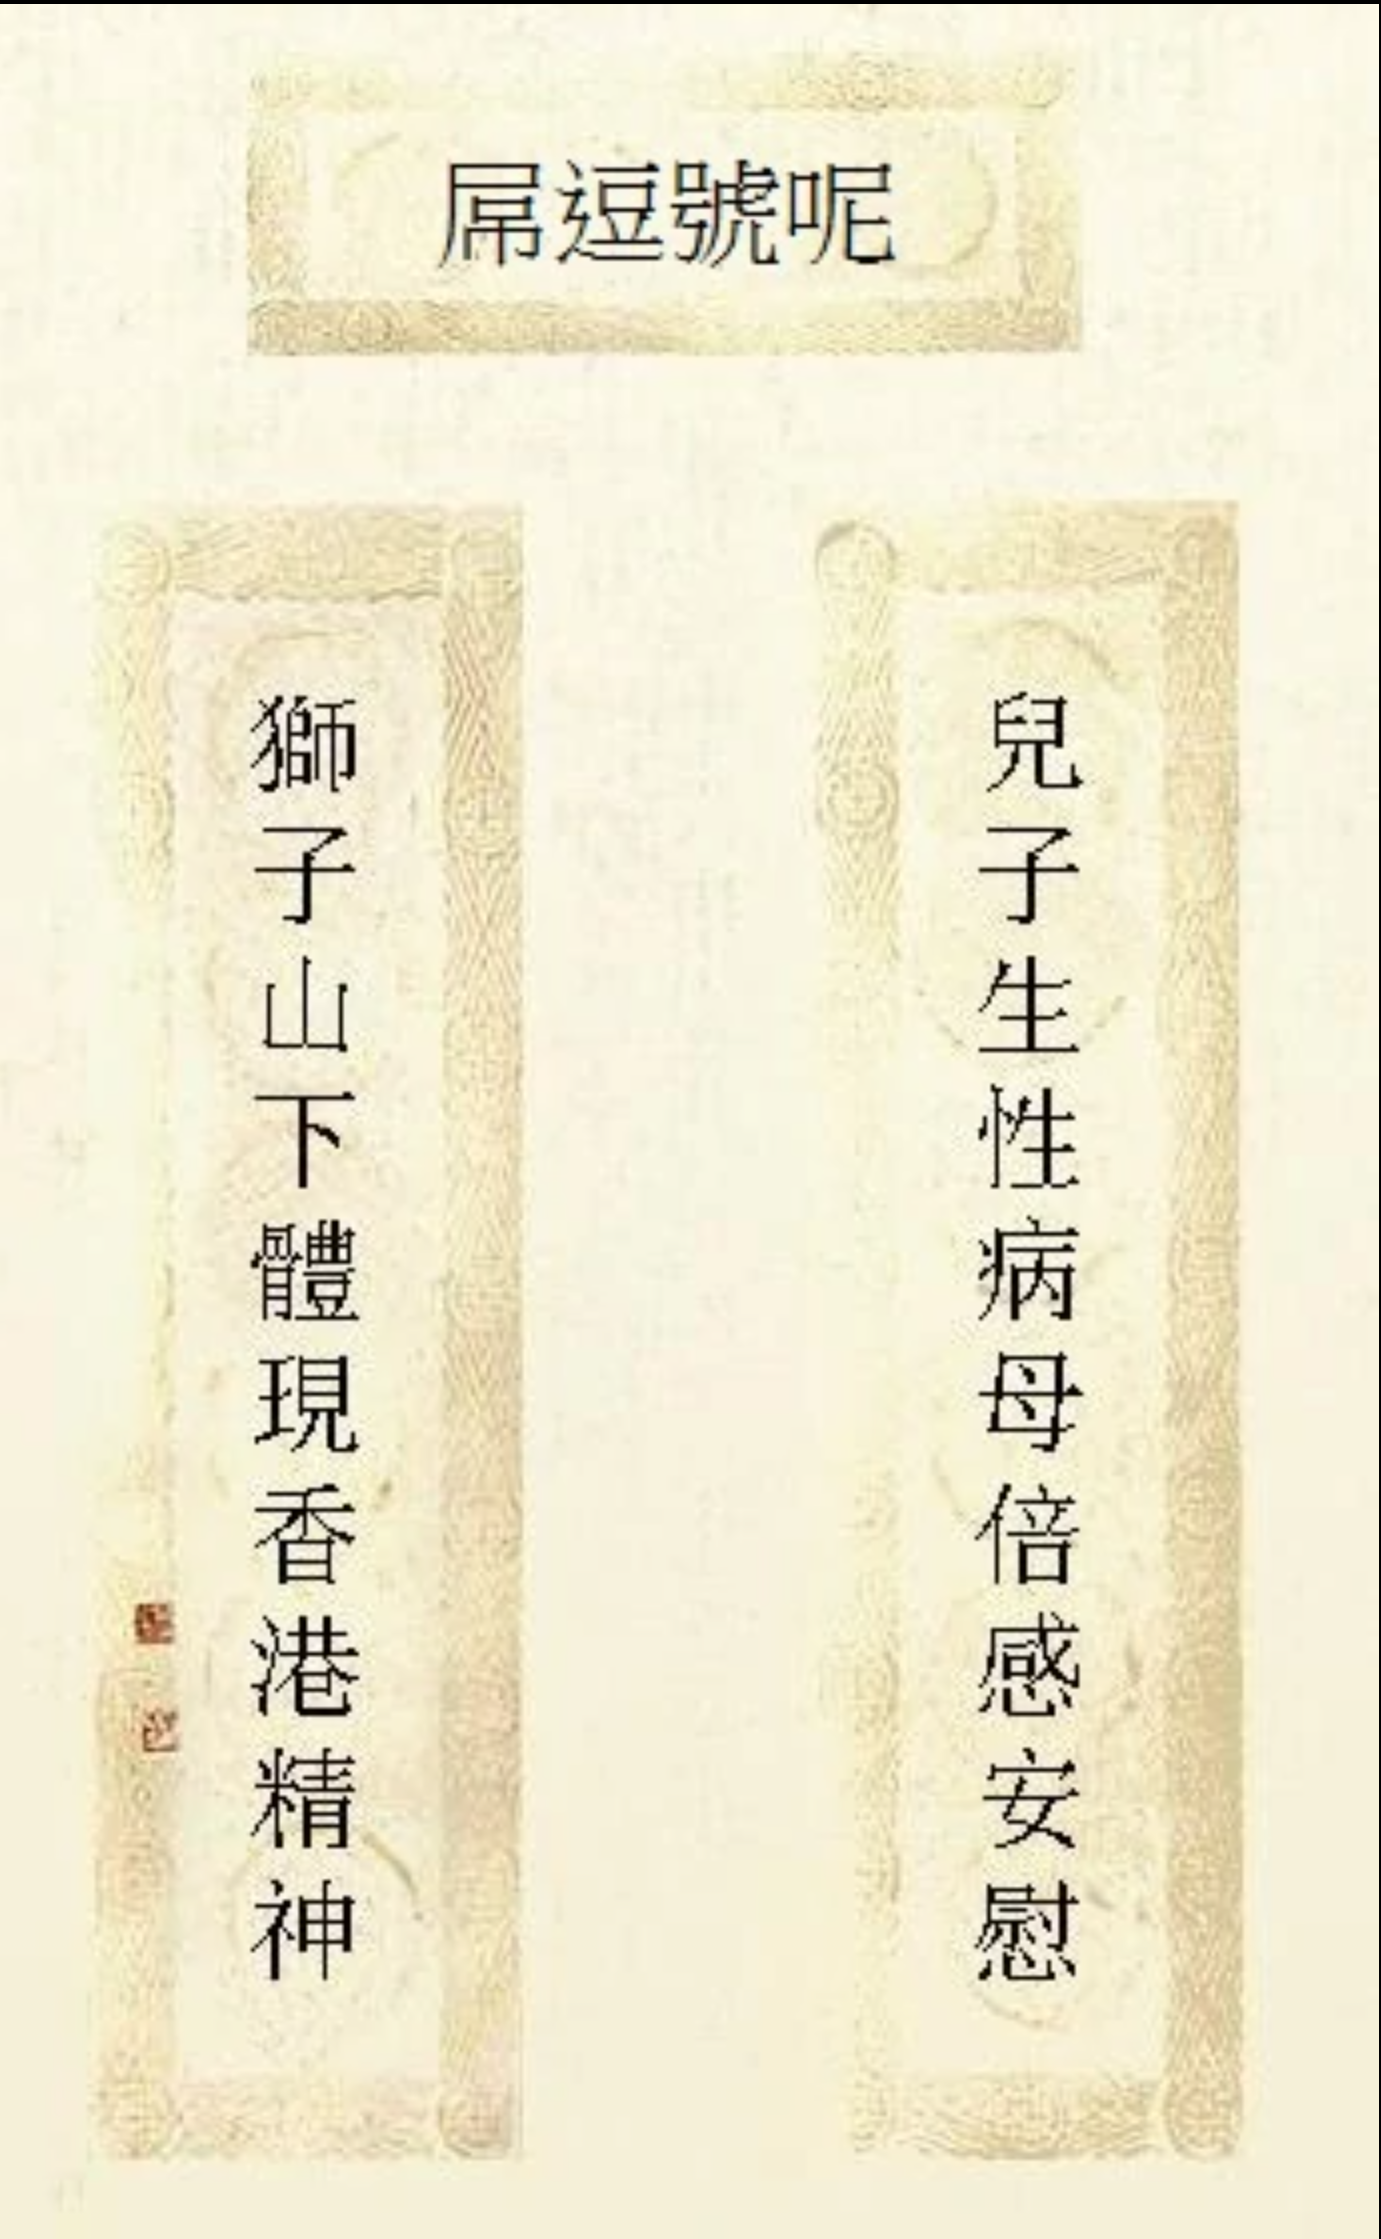 屌逗號呢
兒子生性病母倍感安慰
獅子山下體現香港精神